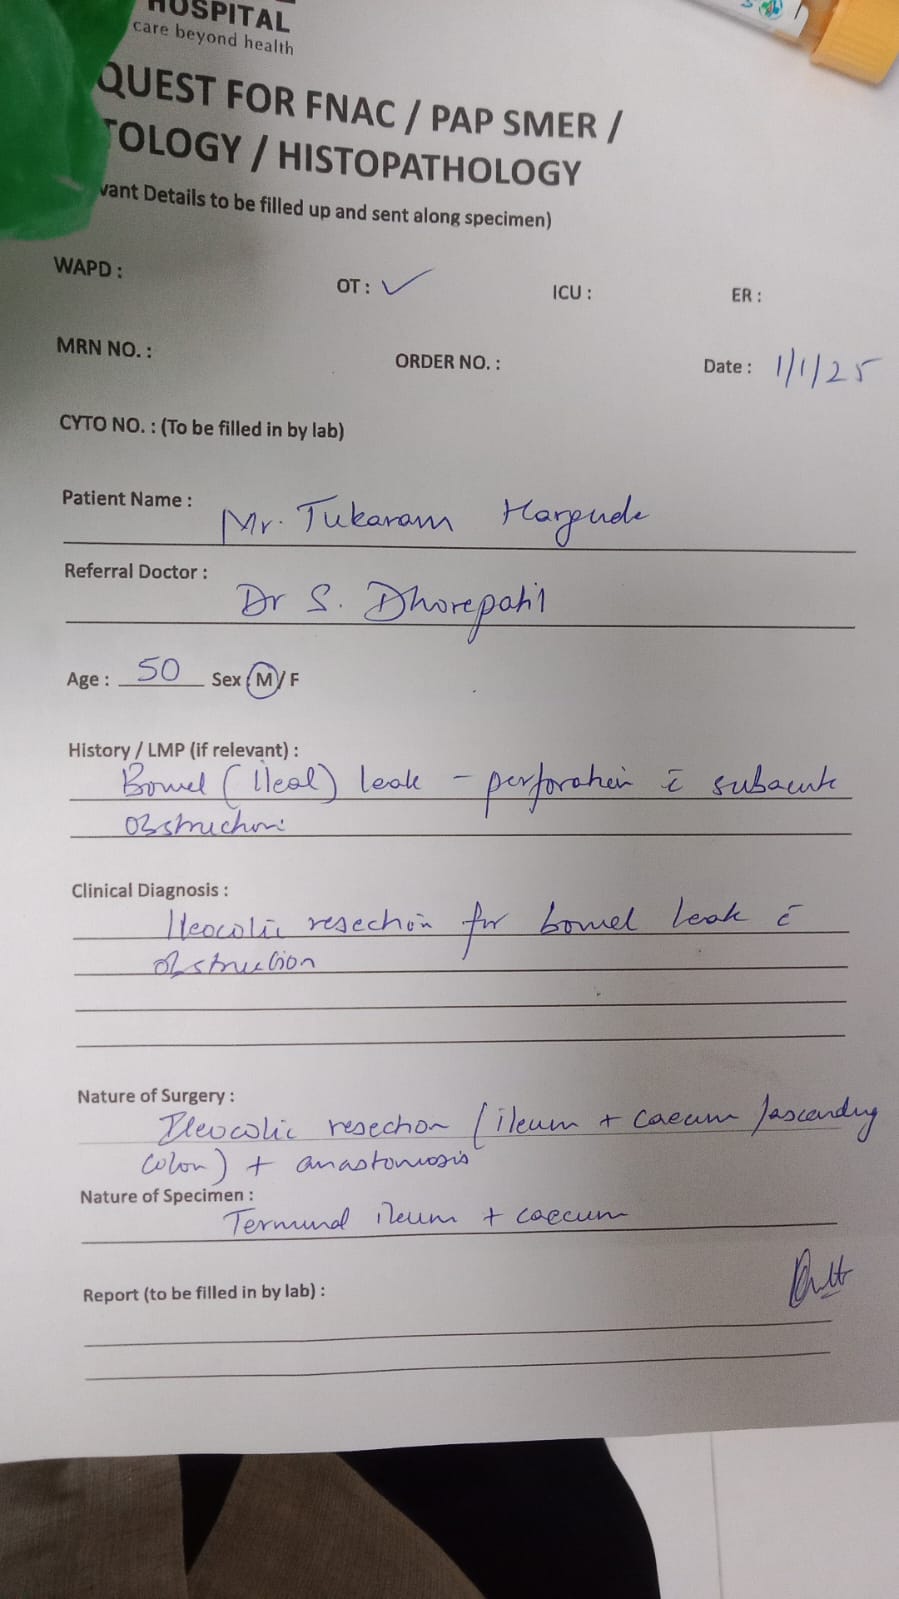 HOSPITAL
care beyond health
QUEST FOR FNAC / PAP SMER /
TOLOGY / HISTOPATHOLOGY
vant Details to be filled up and sent along specimen)
WAPD : OT : ✓ ICU : ER :
MRN NO. : ORDER NO. : Date : 1/1/25
CYTO NO. : (To be filled in by lab)
Patient Name : Mr. Tukaram Hargude
Referral Doctor : Dr S. Dhorepatil
Age : 50 Sex M / F
History / LMP (if relevant) :
Bowel (Ileal) leak - perforation c̄ subacute
obstruction
Clinical Diagnosis :
Ileocolic resection for bowel leak c̄
obstruction
Nature of Surgery :
Ileocolic resection (ileum + caecum /ascending
colon) + anastomosis
Nature of Specimen :
Terminal ileum + caecum
Report (to be filled in by lab) :